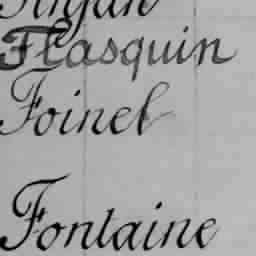 Flasquin
Foinel
Fontaine